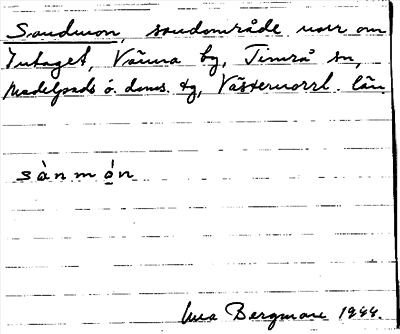 Sandmon, sandområde norr om
Intaget, Vänna by, Timrå sn,
Medelpads ö. doms. tg, Västernorrl. län.
sànmón
Bergman 1944.